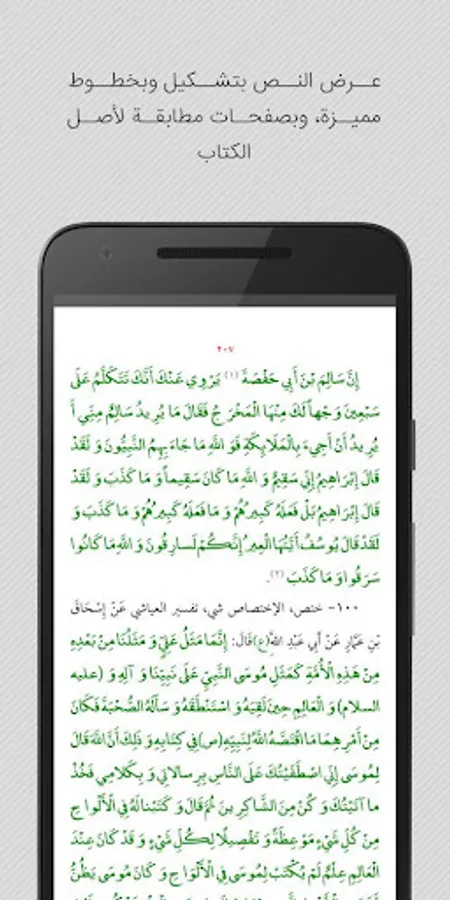 عرض النص بتشكيل وبخطوط
مميزة، وبصفحات مطابقة لأصل
الكتاب
٢٠٧
إِنَّ سَالِمَ بْنَ أَبِي حَفْصَةَ (١) يَرْوِي عَنْكَ أَنَّكَ تَتَكَلَّمُ عَلَى
سَبْعِينَ وَجْهاً لَكَ مِنْهَا الْمَخْرَجُ فَقَالَ مَا يُرِيدُ سَالِمٌ مِنِّي أَ
يُرِيدُ أَنْ أَجِيءَ بِالْمَلَائِكَةِ فَوَ اللَّهِ مَا جَاءَ بِهِمُ النَّبِيُّونَ وَ لَقَدْ
قَالَ إِبْرَاهِيمُ إِنِّي سَقِيمٌ وَ اللَّهِ مَا كَانَ سَقِيماً وَ مَا كَذَبَ وَ لَقَدْ
قَالَ إِبْرَاهِيمُ بَلْ فَعَلَهُ كَبِيرُهُمْ وَ مَا فَعَلَهُ كَبِيرُهُمْ وَ مَا كَذَبَ وَ
لَقَدْ قَالَ يُوسُفُ أَيَّتُهَا الْعِيرُ إِنَّكُمْ لَسَارِقُونَ وَ اللَّهِ مَا كَانُوا
سَرَقُوا وَ مَا كَذَبَ (٢).
١٠٠- ختص، الإختصاص شي، تفسير العياشي عَنْ إِسْحَاقَ
بْنِ عَمَّارٍ عَنْ أَبِي عَبْدِ اللَّهِ(ع)قَالَ: إِنَّمَا مَثَلُ عَلِيٍّ وَ مَثَلُنَا مِنْ بَعْدِهِ
مِنْ هَذِهِ الْأُمَّةِ كَمَثَلِ مُوسَى النَّبِيِّ عَلَى نَبِيِّنَا وَ آلِهِ وَ (عليه
السلام) وَ الْعَالِمِ حِينَ لَقِيَهُ وَ اسْتَنْطَقَهُ وَ سَأَلَهُ الصُّحْبَةَ فَكَانَ
مِنْ أَمْرِهِمَا مَا اقْتَصَّهُ اللَّهُ لِنَبِيِّهِ(ص)فِي كِتَابِهِ وَ ذَلِكَ أَنَّ اللَّهَ قَالَ
لِمُوسَى إِنِّي اصْطَفَيْتُكَ عَلَى النَّاسِ بِرِسَالاتِي وَ بِكَلامِي فَخُذْ
ما آتَيْتُكَ وَ كُنْ مِنَ الشَّاكِرِينَ ثُمَّ قَالَ وَ كَتَبْنا لَهُ فِي الْأَلْواحِ
مِنْ كُلِّ شَيْءٍ مَوْعِظَةً وَ تَفْصِيلًا لِكُلِّ شَيْءٍ وَ قَدْ كَانَ عِنْدَ
الْعَالِمِ عِلْمٌ لَمْ يُكْتَبْ لِمُوسَى فِي الْأَلْوَاحِ وَ كَانَ مُوسَى يَظُنُّ